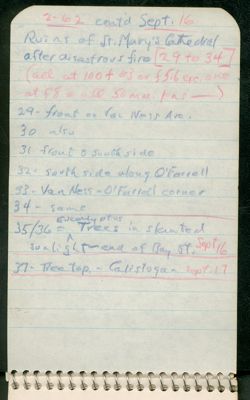 2-62 contd Sept. 16
Ruins of St. Mary's Cathedral
after disastrous fire [29 to 34]
29 - front on Van Ness Ave.
30 also
31 front & south side
32 - south side along O'Farrell
33 - Van Ness - O'Farrell corner
34 - same
eucalyptus
35/36 = Trees in slanted
sunlight - end of Bay St. Sept 16
37 - Tree top, - Calistogan Sept. 17